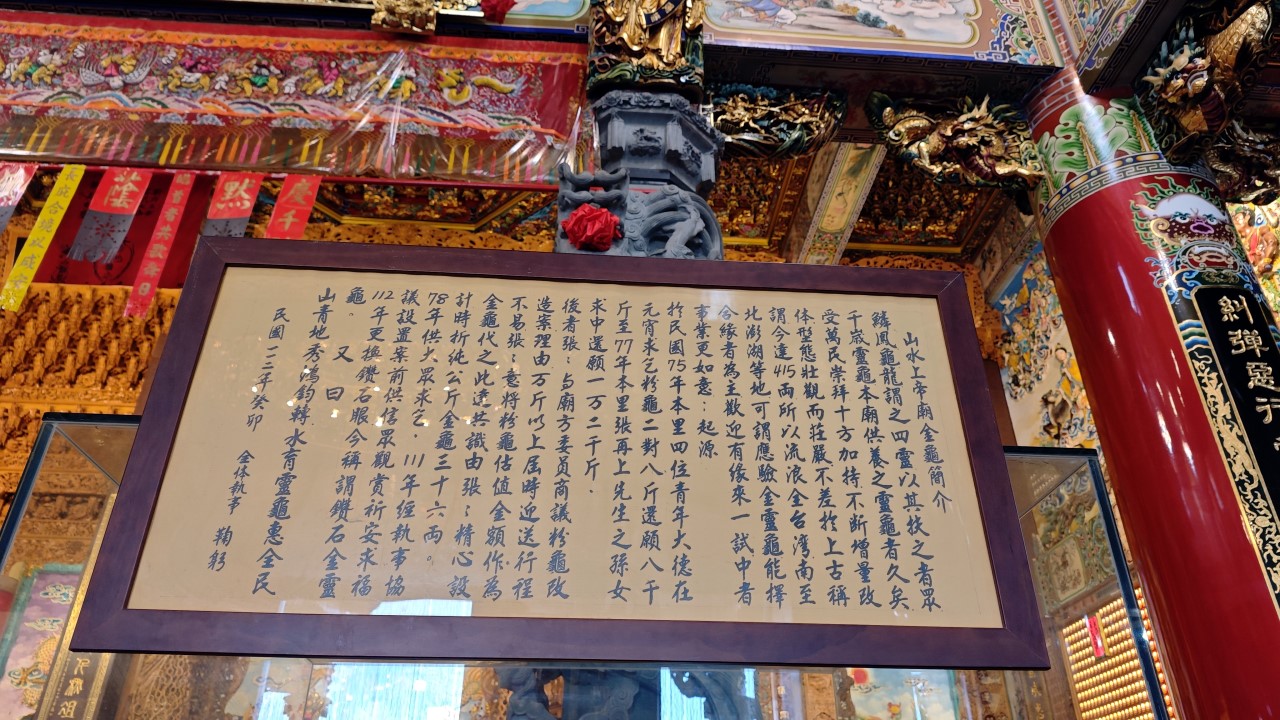 山水上帝廟金龜簡介
鱗鳳龜龍謂之四靈以其扶之者眾
千歲靈龜本廟供養之靈龜者久矣
受萬民崇拜十方加持不斷增量改
体型態壯觀而莊嚴不差於上古稱
謂今達415兩所以流浪全台灣南至
北澎湖等地可謂應驗金靈龜能擇
合緣者為主歡迎有緣來一試中者
事業更如意：起源
於民國75年本里四位青年大德在
元宵求乞粉龜二對八斤還願八千
斤至77年本里張再上先生之孫女
求中還願一万二千斤．
後者張：与廟方委員商議粉龜改
造案理由万斤以上屆時迎送行程
不易張：意將粉龜估值金額作為
金龜代之此達共識由張：精心設
計時折純公斤金龜三十六兩。
78年供大眾求乞，111年經執事協
議設置案前供信眾觀賞祈安求福
112年更換鑽石眼今稱謂鑽石金靈
龜。又曰
山青地秀鴻鈞轉水育靈龜惠全民
民國一一二年癸卯 全体執事 鞠躬
蔭
黙
慶千
糾彈惡行